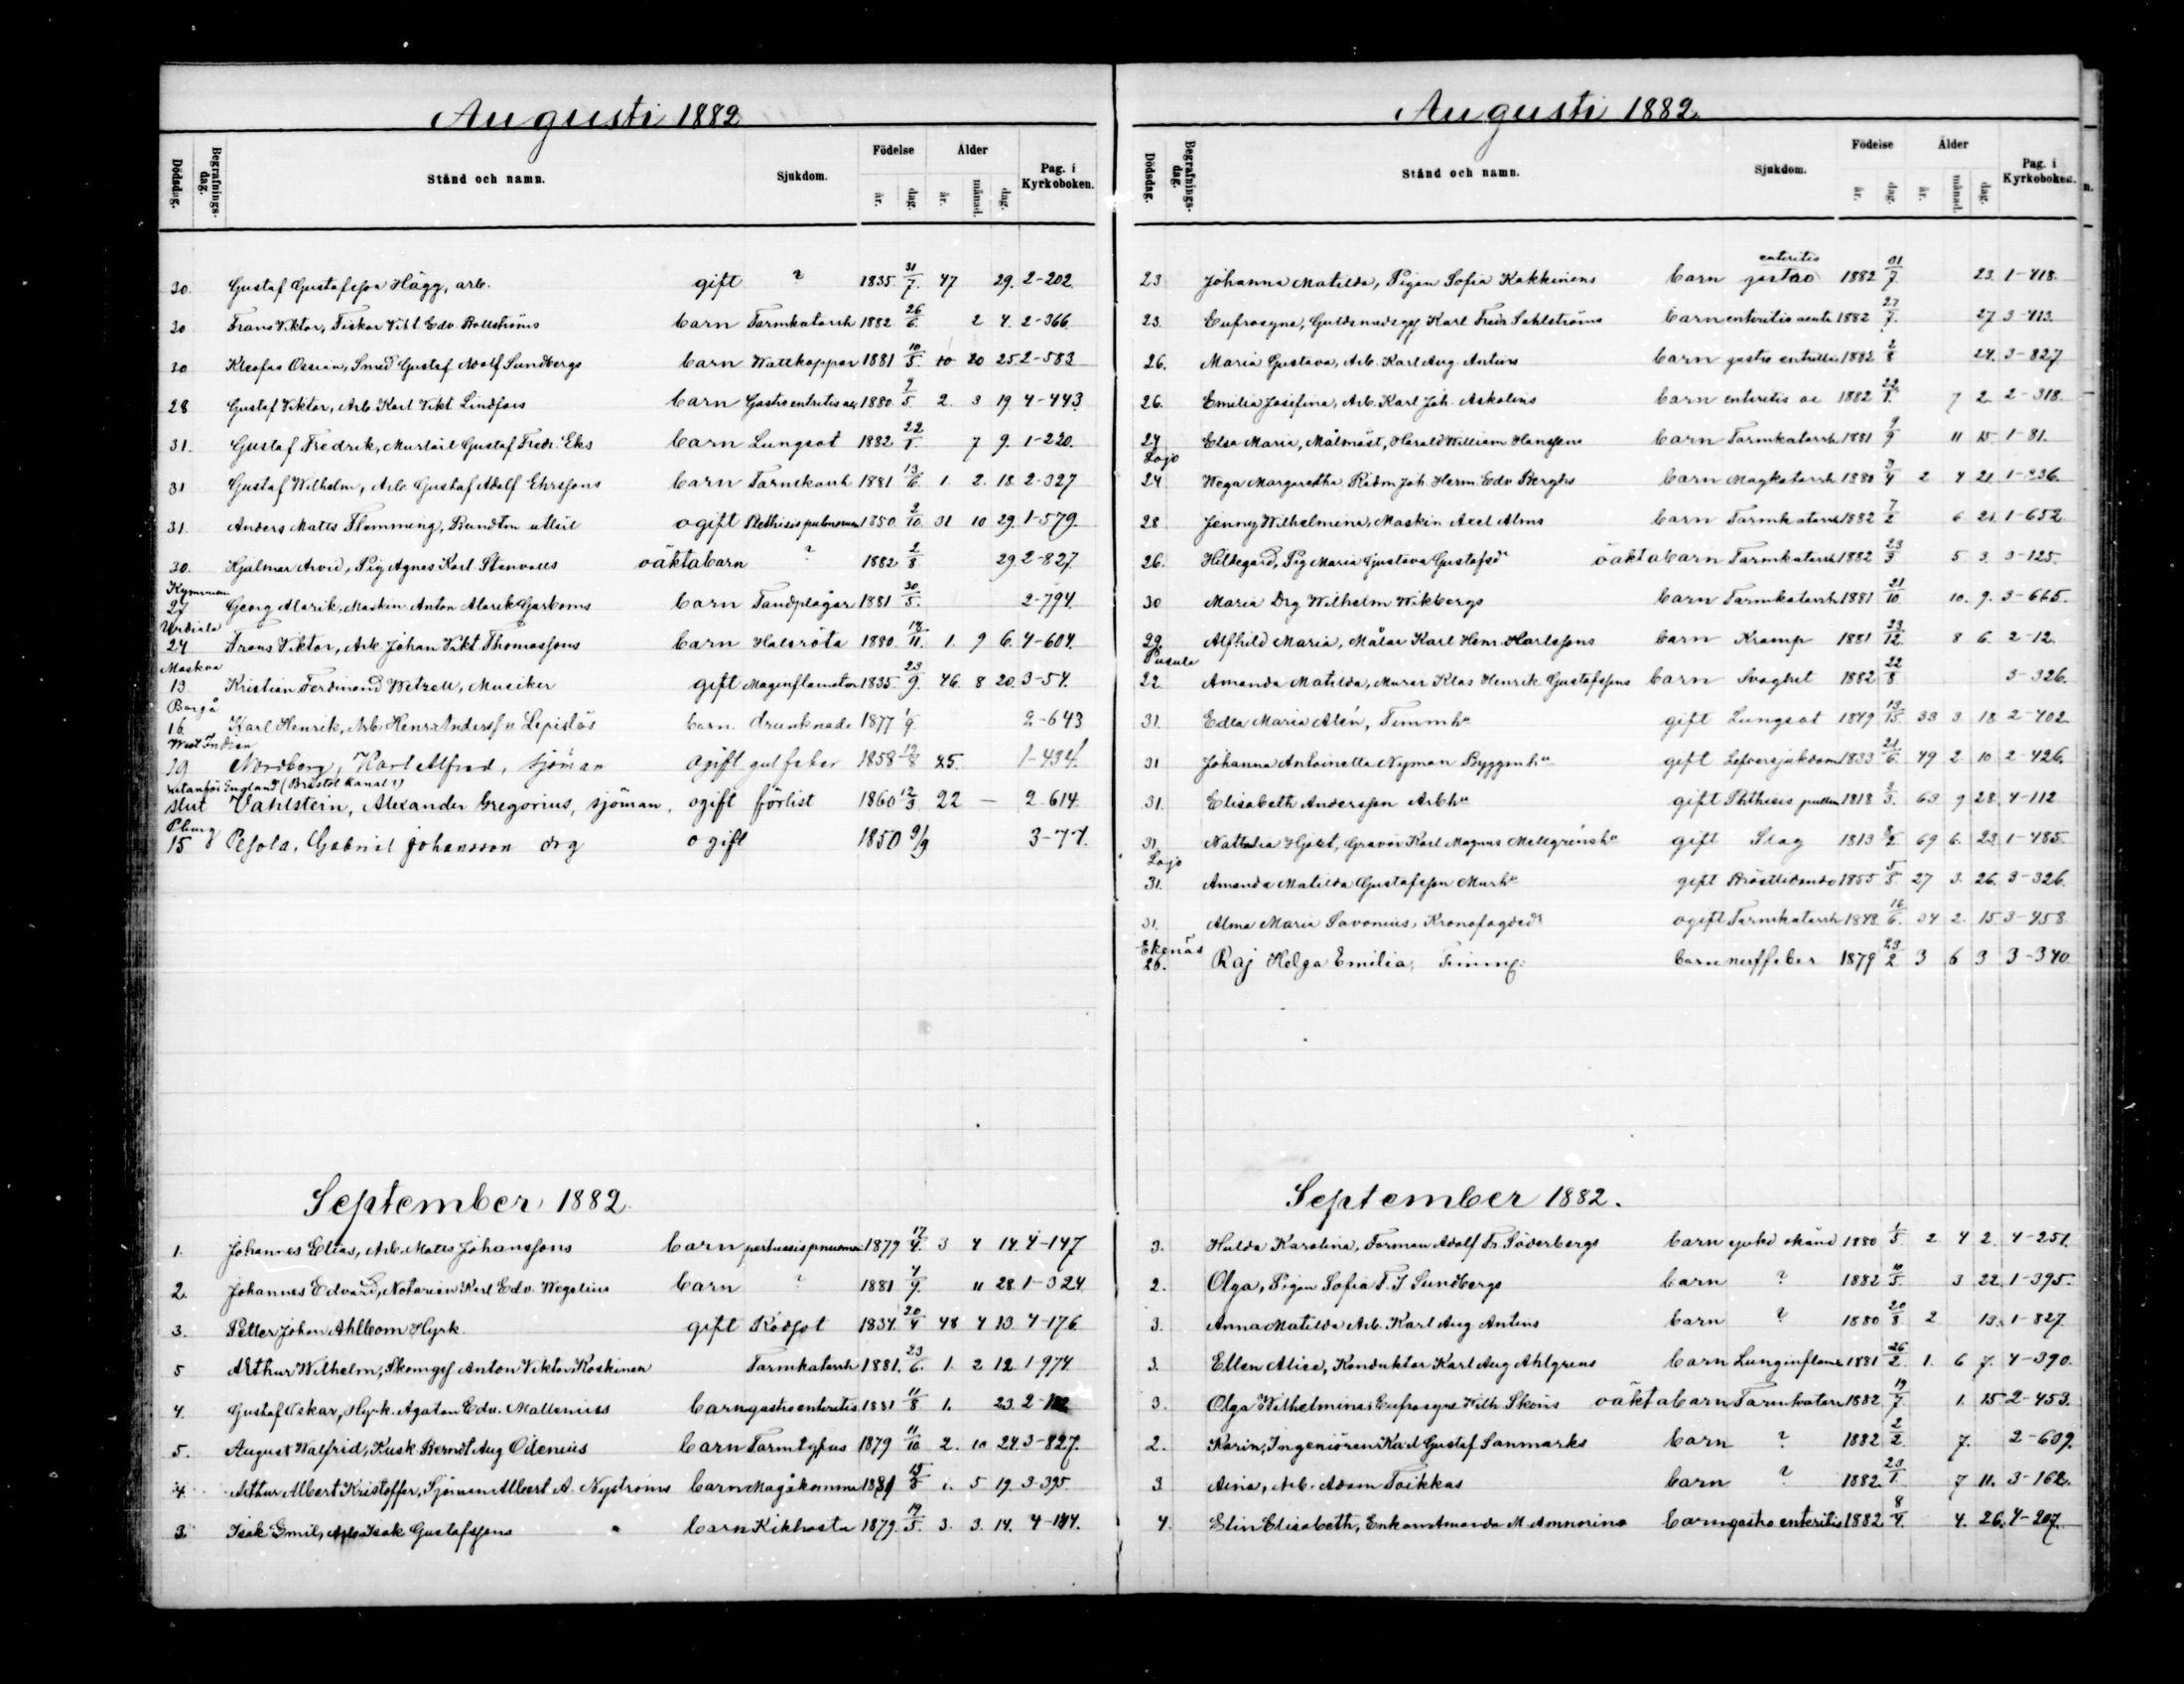 Augusti 1882
Dödsdag. Begrafningsdag. Stånd och namn. Sjukdom. Födelse år. dag. Ålder år. månad. dag. Pag. i Kyrkoboken.
30. Gustaf Gustafsson Hägg, arb. gift ? 1835 31/7. 47 29. 2-202
30 Frans Viktor, Fiskar Vikt. Edv. barn Tarmkatarrh 1882 26/6. 2 4. 2-366.
30 Kleofas Ossian, Smed Gustaf Adolf Sundbergs barn Wattkoppor 1881 10/5. 20 25 2-583
28 Gustaf Viktor, Arb. Karl Vikt Lindfors barn Gastroenteritis 1880 9/5. 2. 3 19. 4-443.
31. Gustaf Fredrik, Gustaf Fredr. Eks barn Lungsot 1882 22/1. 7 9. 1-220.
31 Gustaf Wilhelm, Arb. Gustaf Adolf Ehrssons barn 1881 13/6. 1. 2. 18. 2-327
31. Anders Matts Flemming, ogift 1850 2/10. 31 10 29. 1-579.
30. Hjalmar Arvid, Pig. Agnes Karl. Stenvalls oäkta barn ? 1882 2/8 29. 2-827.
Kymmene
27 Georg Alarik, Maskin. Anton Alarik barn Tandplågor 1881 30/5. 2-794.
Urdiala
24 Frans Viktor, Arb. Johan Vikt. Thomassons barn Halsröta 1880 18/11. 1. 9 6. 4-604.
Moskva
13 Kristian Ferdinand Wetzell, Musiker gift 1835 23/9. 46. 8 20. 3-54.
Borgå
16. Karl Henrik, Arb. Henr. Anderss. Lepistös barn. drunknade 1877 1/9. 2-643
West Indien
19 Nordberg, Karl Alfred, sjöman ogift gulfeber 1858 25. 1-434.
utanför England (Bristol kanal?)
slut Vahlstein, Alexander Gregorius, sjöman, ogift förlist 1860 12/3 22 — 2-614.
Pburg
15 Pesola, Gabriel Johansson drg ogift 1850 9/9 3-77.
September 1882.
1. Johannes Elias, Arb. Matts Johanssons barn pertussis pneumon 1879 17/4. 3 4 14. 4-147
2. Johannes Edvard, Notarien Karl Edv. Wegelius barn ? 1881 4/9. 11 28. 1-324
3. Petter Johan Ahlbom Hyrk. gift Rödsot 1834. 20/4 48 4 13. 4-176
5 Arthur Wilhelm, Skomg. Anton Viktor Koskinen Tarmkatarrh 1881. 23/6. 1. 2 12. 1-974
4. Gustaf Oskar, Hyrk. Agaton Edv. Mallenius barn gastroenteritis 1881 11/8 1. 23.
5. August Walfrid, Kusk Berndt Aug Odenius barn Tarmtyfus 1879 11/10 2. 10 24. 3-827.
4. Arthur Albert Kristoffer, Sjöman Albert A. Nyströms barn Magåkomma 1881 1. 5 19. 3-395.
3. Isak Emil, Arb. Isak Gustafssons barn Kikhosta 1879. 19/5. 3. 3. 14. 4-144.
Augusti 1882.
Dödsdag. Begrafningsdag. Stånd och namn. Sjukdom. Födelse år. dag. Ålder år. månad. dag. Pag. i Kyrkoboken.
23 Johanna Matilda, Pigan Sofia Kakkinens barn gastro enteritis 1882 31/7 23. 1-418.
23. Eufrosyne, Guldsmedsg. Karl Fredr. Sahlströms barn enteritis acuta 1882 27/7. 27 3-413.
26. Maria Gustava, Arb. Karl Aug. Antins barn gastro enteritis 1882 2/8 24. 3-827
26. Emilia Josefina, Arb. Karl Joh. Askolins barn enteritis ac 1882 22/1. 7 2. 2-318.
24 Elsa Maria, Målmäst. Harald William Hanssons barn Tarmkatarrh 1881 9/9 11 15 1-81.
Lojo
24 Wega Margaretha, Rådm. Joh. Herm. Edv. Berghs barn Magkatarrh 1880 3/4 2 4 21. 1-236.
28 Jenny Wilhelmina, Maskin. Axel Alms barn Tarmkatarrh 1882 7/2 6 21. 1-652
26. Hildegard, Pig. Maria Gustava Gustafsd. oäkta barn Tarmkatarrh 1882 23/3 5 3. 3-125.
30 Maria Drg Wilhelm Wikbergs barn Tarmkatarrh 1881 21/10 10. 9. 3-665.
29. Alfhild Maria, Målar. Karl Henr. Karlssons barn Kramp 1881 23/12. 8 6. 2-12.
Pusula
22. Amanda Matilda, Murar. Klas Henrik Gustafssons barn Svaghet 1882 22/8 3-326.
31. Edla Maria Alén, Timmh. gift Lungsot 1849 33 3. 18. 2-402.
31 Johanna Antoinetta Nyman Byggmh. gift Lefversjukdom 1833 21/6. 49 2. 10 2-426.
31. Elisabeth Andersson Arbh. gift Phthisis pulm 1818 63 9 28. 4-112
31. Natalia Hjelt, Gravör Karl Magnus Mellgrénsh. gift Slag 1813 69 6. 23. 1-485.
Lojo
31. Amanda Matilda Gustafsson Murh. gift Bröstlidande 1855 5/5. 27 3. 26. 3-326.
31. Alma Maria Savonius, Kronofogded. ogift Tarmkatarrh 1848. 16/6. 34 2. 15 3-458
Ekenäs
26. Raj Helga Emilia, barn nerffeber 1879 23/2 3 6 3 3-340
September 1882.
3. Hulda Karolina, Forman Adolf Fr. Söderbergs barn 1880 1/5. 2 4 2. 4-251.
2. Olga, Pigan Sofia F. J Sundbergs barn ? 1882 10/5. 3 22. 1-395.
3. Anna Matilda Arb. Karl Aug Antins barn ? 1880 20/8 2 13. 1-827.
3. Ellen Alise, Konduktor Karl Aug Ahlgrens barn Lunginflam 1881 26/2. 1. 6 7. 4-390.
3. Olga Wilhelmina, Eufrosyne Wilh. Sköns oäkta barn Tarmkatarr 1882 19/7. 1. 15 2-453.
2. Karin, Ingeniören Karl Gustaf Sanmarks barn ? 1882 2/2. 7. 2-609.
3 Aina, Arb. Adam Toikkas barn ? 1882. 23/1. 7 11. 3-162.
4. Elin Elisabeth, Enkan Amanda M. Amnorins barn gastro enteritis 1882 8/4. 4. 26. 4-207.